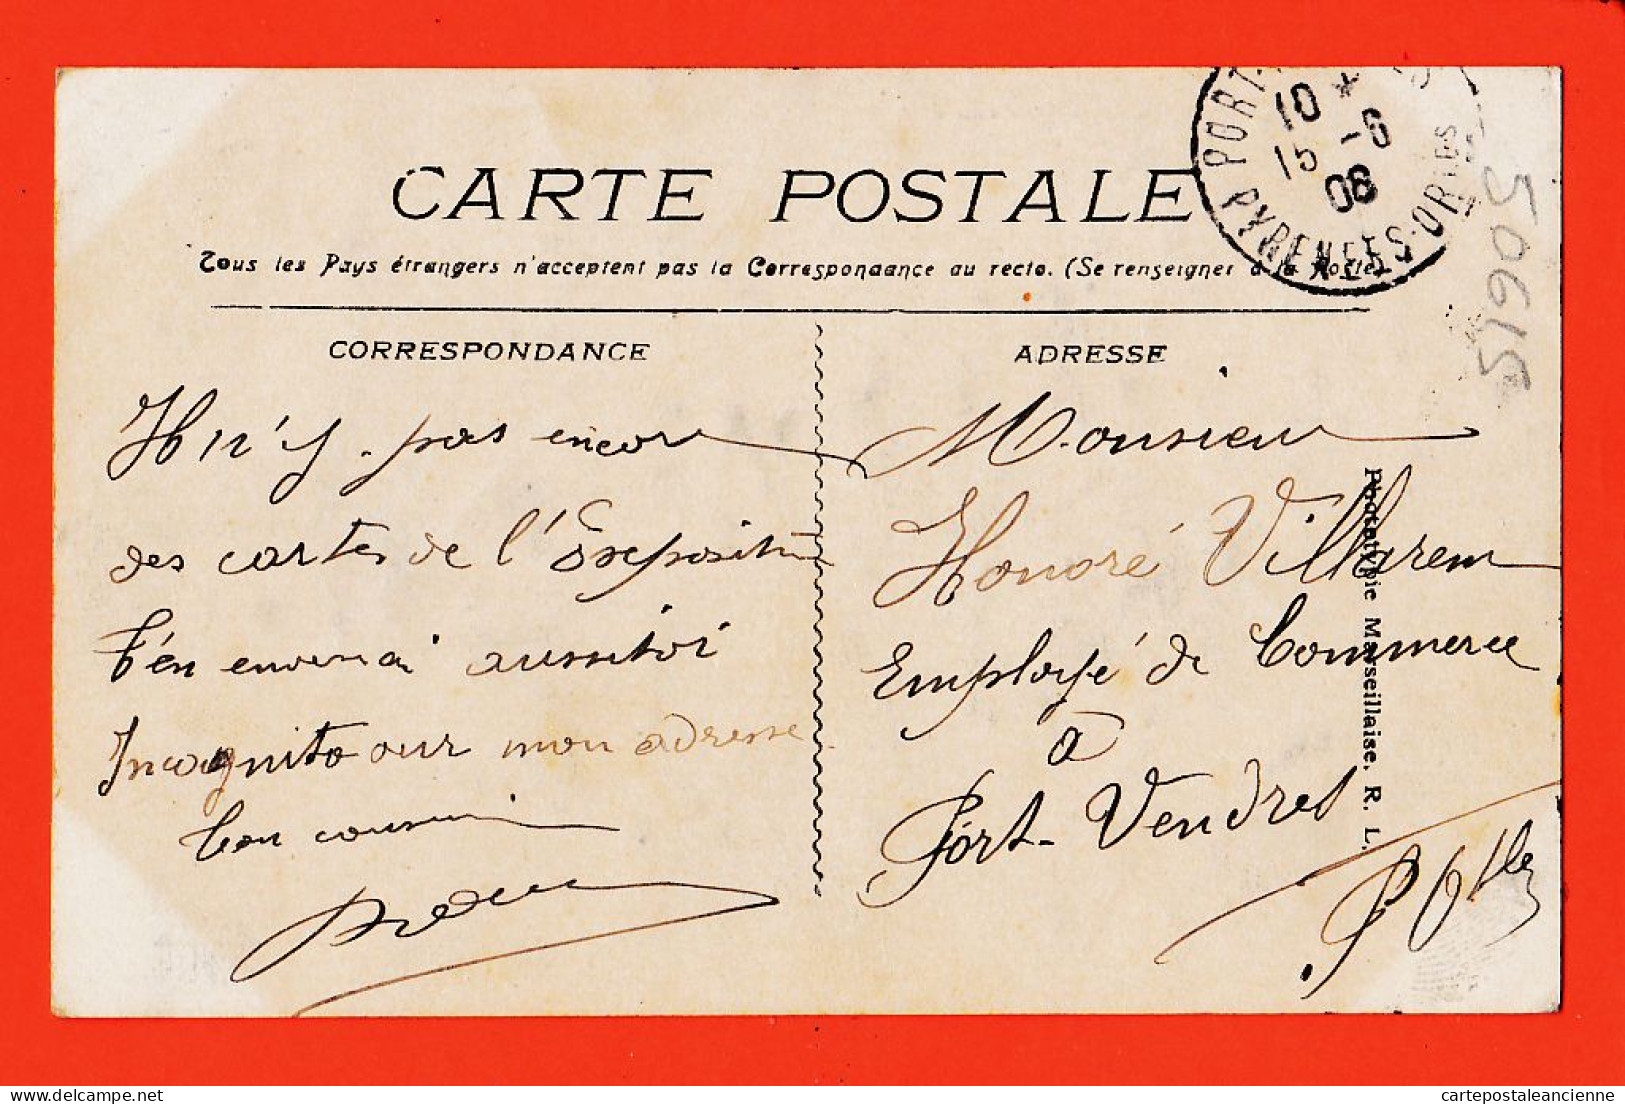 CARTE POSTALE
Tous les Pays étrangers n'acceptent pas la Correspondance au recto. (Se renseigner à la Poste)
PORT-
PYRENEES-ORLES
10 *
15 -6
08
50615
CORRESPONDANCE
Il n'y pas encore
des cartes de l'Exposition
t'en enverrai aussitôt
Incognito sur mon adresse
ton cousin
ADRESSE
Monsieur
Honoré Villarem
Employé de Commerce
à
Port-Vendres
P Olles
Phototypie Marseillaise, R. L.
cartepostaleancienne
delcampe.net